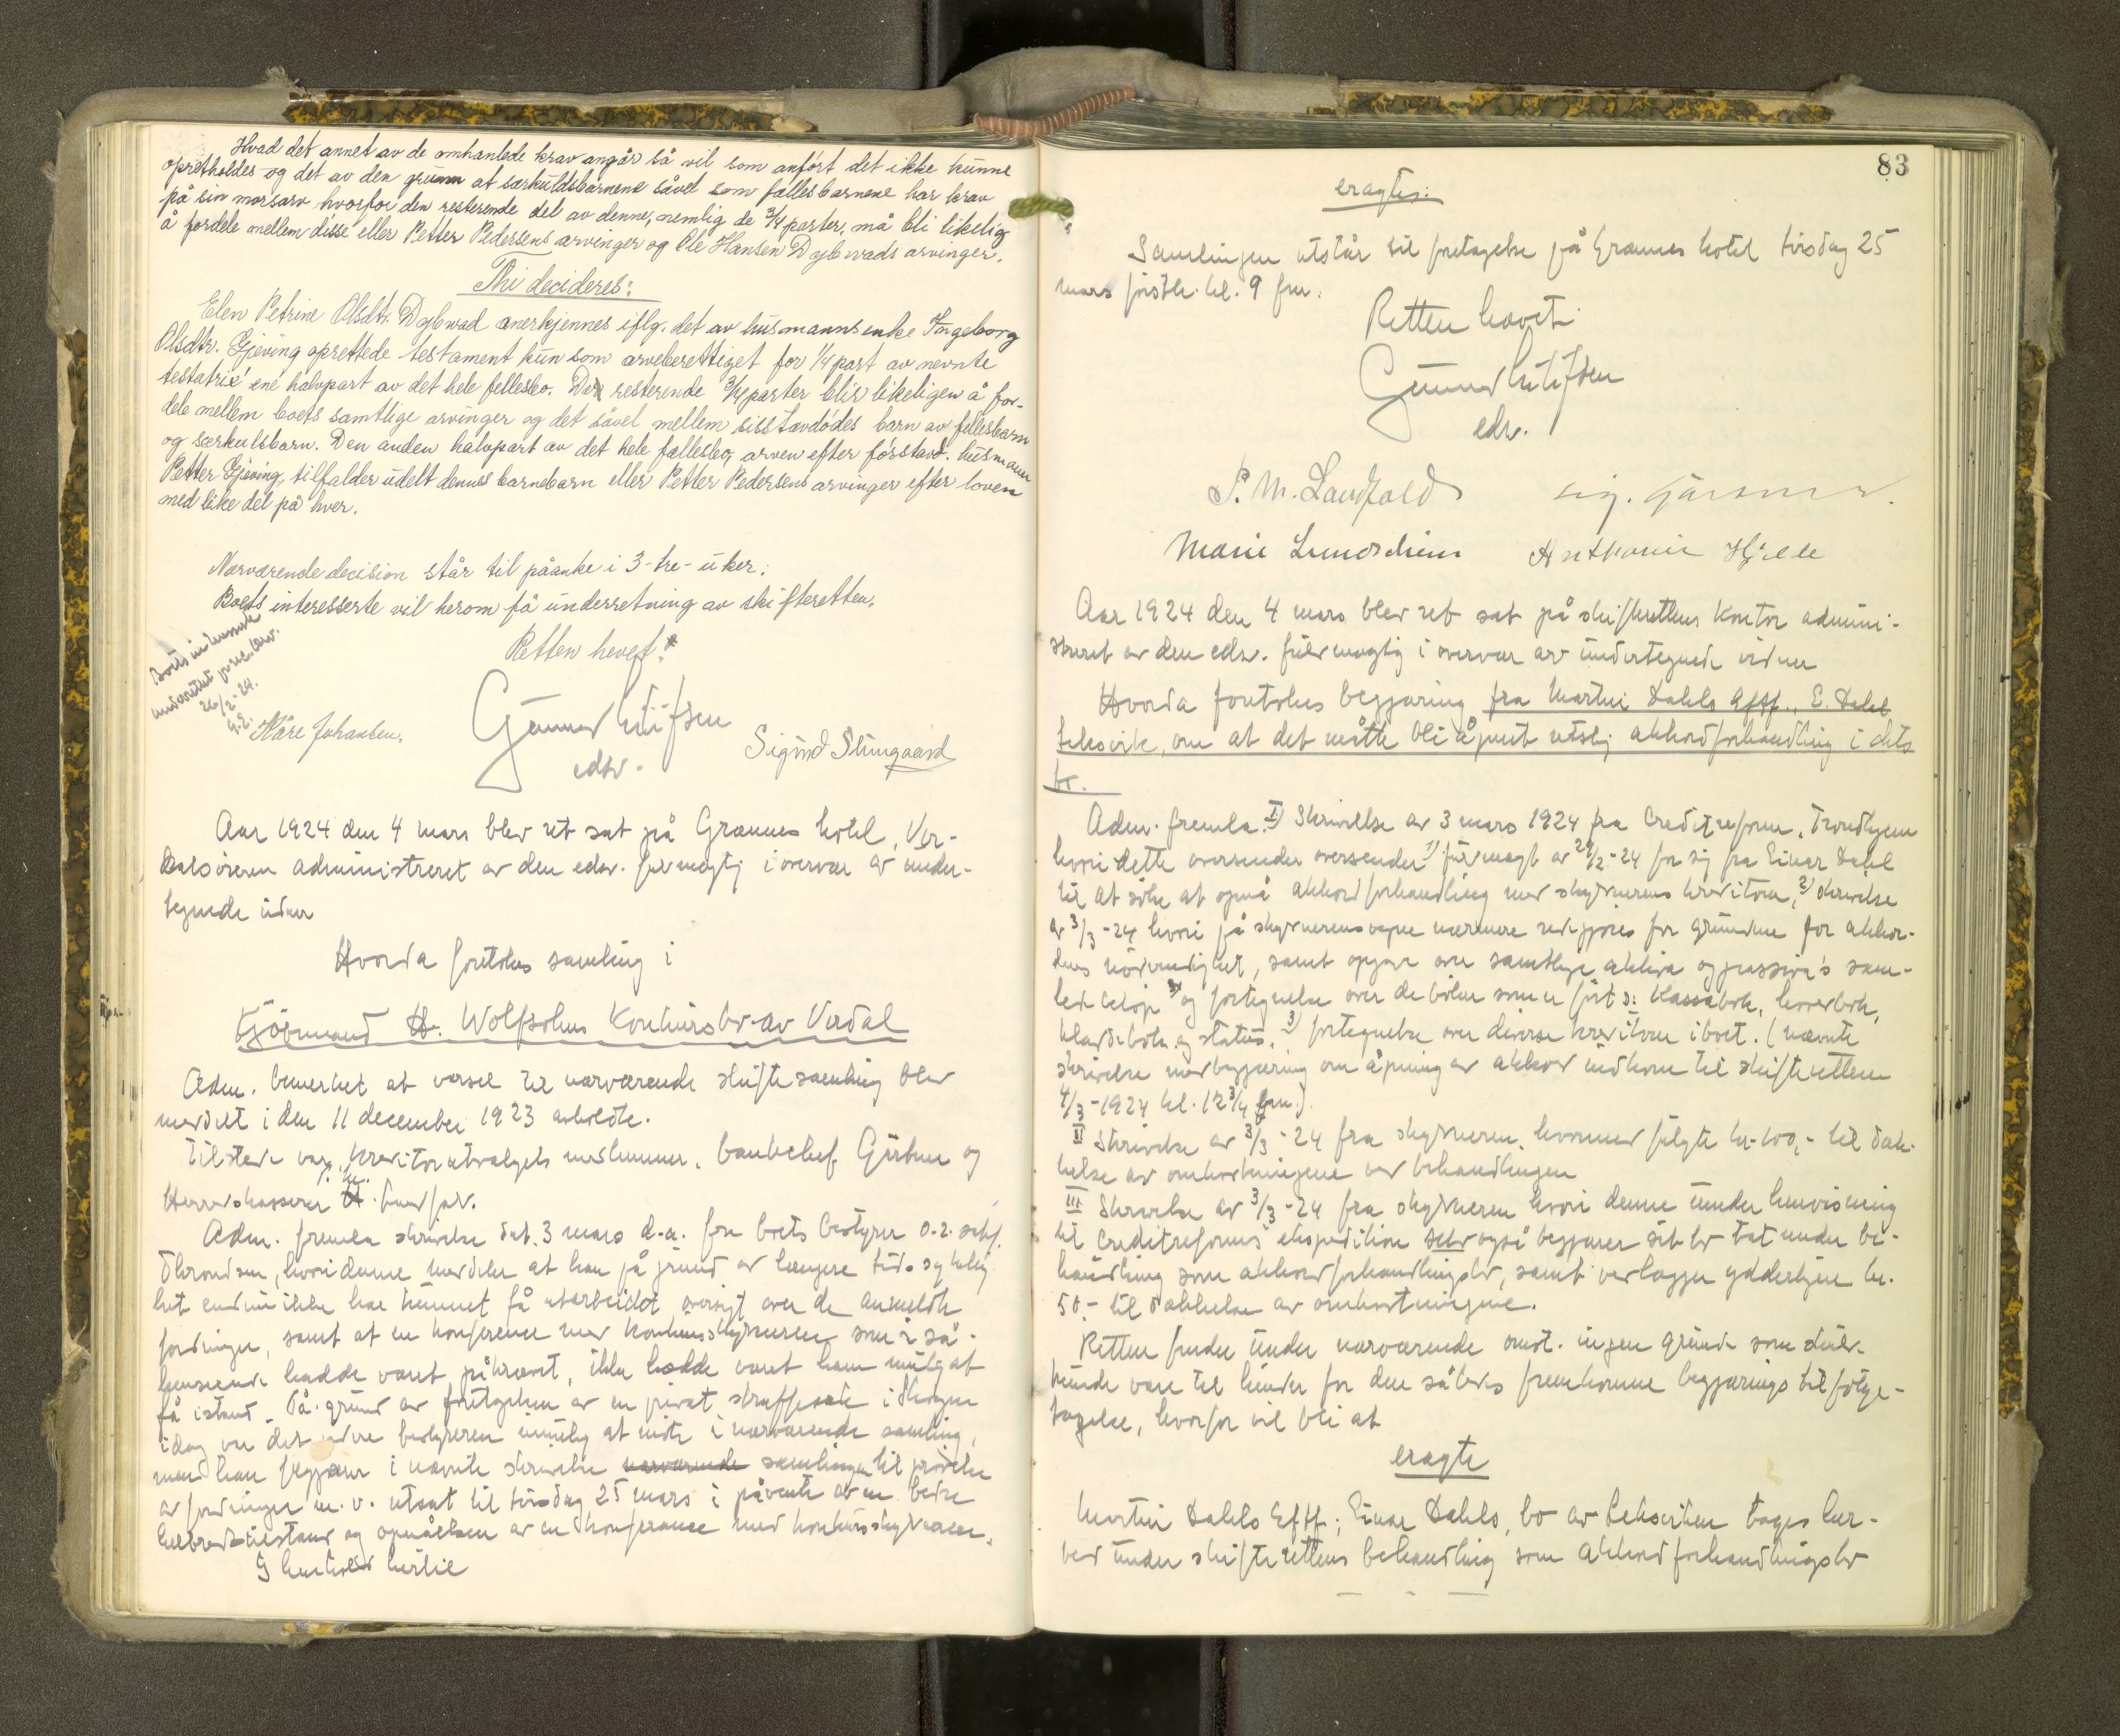 Hvad det annet av de omhanlede krav angår så vil som anført det ikke kunne
opretholdes og det av den grunn at særkuldsbarnene såvel som fællesbarnene har krav
på sin morsarv hvorfor den resterende del av denne, nemlig de 3/4 parter, må bli likelig
å fordele mellem disse eller Petter Pedersens arvinger og Ole Hansen Dajlwads arvinger.
Thi decideres:
Elen Petrine Olsdtr. Dajlwad anerkjennes iflg. det av husmannsenke Ingeborg
Olsdtr. Gjeving oprettede testament kun som arveberettiget for 1/4 part av nevnte
testatrix' ene halvpart av det hele fellesbo. De resterende 3/4 parter blir likeligen å for-
dele mellem boets samtlige arvinger og det såvel mellem sisstavdødes barn av fellesbarn
og særkulsbarn. Den anden halvpart av det hele fællesbo, arven efter førstavd. husmann
Petter Gjeving, tilfalder udelt dennes barnebarn eller Petter Pedersens arvinger efter loven
med like del på hver.
Nærværende decision står til påanke i 3-tre-uker.
Boets interesserte vil herom få underretning av skifteretten.
Retten hevet.
Boets interesserte
underrettet pr. rek. brev.
26/2-24.
Kåre Johansen.
Gunnar
edsv.
Sigurd Stimgaard
Aar 1924 den 4 mars blev ret sat på Grannes hotel, Ver-
dalsøren administreret av den edsv. fulmægtig i overvær av under-
tegnede vidner
Hvorda foretokes samling i
Kjøbmand H. Wolfsohns Konkursbo av Verdal
Adm. bemerket at varsel til nærværende skiftesamling blev
meddelt i den 11 december 1923 avholdte.
Tilstede var kreditorutvalgets medlemmer, bankchef Gürtner og
Herredskasserer P. M. Landfald.
Adm. fremla skrivelse dat. 3 mars d.a. fra boets bestyrer o.r. sakf.
Thronsen, hvori denne meddeler at han på grund av længere tids sykelig-
het endnu ikke har kunnet få utarbeidet oversigt over de anmeldte
fordringer, samt at en konferance med konkursskyldneren som i så-
henseende hadde været påkrævet, ikke hadde været ham mulig at
få istand. På grund av foretagelsen av en privat straffesak i Skogn
idag var det bestyreren umulig at møte i nærværende samling,
men han begjærer i nævnte skrivelse nærværende samlingen til prøvelse
av fordringer m.v. utsat til tirsdag 25 mars i påvente av en bedre
helbredstilstand og opnåelsen av en konferance med konkursskyldneren.
I henhold hertil
83
eragtes:
Samlingen utstår til foretagelse på Grannes hotel tirsdag 25
mars førstk. kl. 9 fm.
Retten hævet.
Gunnar
edsv.
P. M. Landfald
Marie Lundschien
Anthonie Hjelle
Aar 1924 den 4 mars blev ret sat på skifterettens kontor admini-
streret av den edsv. fuldmægtig i overvær av undertegnede vidner
Hvorda foretokes begjæring fra Martin Dahls Eftf., E. Dahl
Leksvik, om at det måtte bli åpnet utslig akkordforhandling i dets
bo.
Adm. fremla. I) Skrivelse av 3 mars 1924 fra Creditreform, Trondhjem
hvori dette oversender oversender 1) fuldmagt av 29/2-24 for sig fra Einar Dahl
til at søke at opnå akkordforhandling med skyldnerens kreditorer, 2) skrivelse
av 3/3-24 hvori på skyldnerens vegne nærmere redegjøres for grundene for akkor-
dens nødvendighet, samt opgave over samtlige aktiva og passiva's sam-
lede beløp og fortegnelse over de bøker som er ført s: Kassabok, hovedbok,
kladdebok og status. 3) fortegnelse over diverse kreditorer i boet. (Nævnte
skrivelse med begjæring om åpning av akkord indkom til skifteretten
4/3-1924 kl. 12 3/4 fm.).
II Skrivelse av 3/3-24 fra skyldneren hvormed fulgte kr. 100,- til dæk-
kelse av omkostningene ved behandlingen
III Skrivelse av 3/3-24 fra skyldneren hvori denne under henvisning
til Creditreforms ekspedition selv også begjærer sit bo tat under be-
handling som akkordforhandlingsbo, samt vedlægger ydderligere kr.
50.- til dækkelse av omkostningene.
Retten finder under nærværende omst. ingen grunde som skulde
kunde være til hinder for den således fremkomne begjærings tilfølge-
tagelse, hvorfor vil bli at
eragte
Martin Dahls Eftf; Einar Dahls, bo av Leksviken tages her-
ved under skifterettens behandling som akkordforhandlingsbo